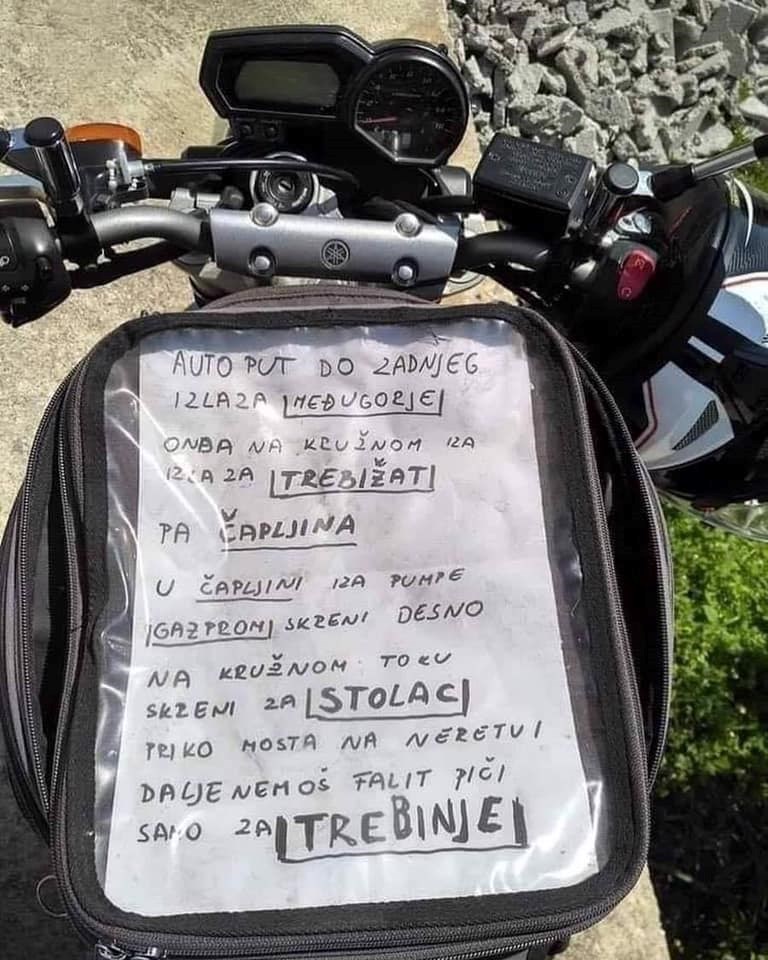 AUTO PUT DO ZADNJEG
IZLAZA MEĐUGORJE
ONDA NA KRUŽNOM IZA
IZLAZA TREBIŽAT
PA ČAPLJINA
U ČAPLJINI IZA PUMPE
GAZPROM SKRENI DESNO
NA KRUŽNOM TOKU
SKRENI ZA STOLAC
PRIKO MOSTA NA NERETVI
DALJE NEMOŠ FALIT PIČI
SAMO ZA TREBINJE